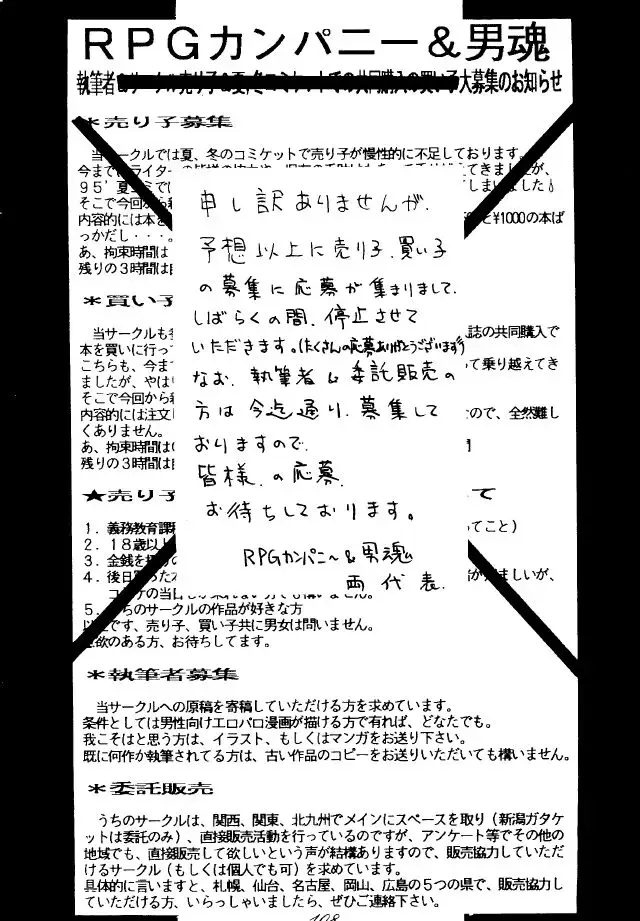 RPGカンパニー＆男魂
執筆者 大募集のお知らせ
＊売り子募集
当サークルでは夏、冬のコミケットで売り子が慢性的に不足しております。
今まで
９５'夏
そこで今回から
内容的には本を ￥1000の本ば
っかだし・・・。
あ、拘束時間は
残りの３時間は
＊買い子
当サークルも 誌の共同購入で
本を買いに行っ
こちらも、今ま て乗り越えてき
ましたが、やは
そこで今回から
内容的には注文し ので、全然難し
くありません。
あ、拘束時間は
残りの３時間は
★売り子 て
１．義務教育課 ってこと）
２．１８歳以上
３．金銭を
４．後日 ましいが、
５． ちのサークルの作品が好きな方
以上です、売り子、買い子共に男女は問いません。
意欲のある方、お待ちしてます。
申し訳ありませんが、
予想以上に売り子、買い子
の募集に応募が集まりまして、
しばらくの間、停止させて
いただきます。(たくさんの応募ありがとうございます)
なお、執筆者＆委託販売の
方は今迄通り、募集して
おりますので、
皆様、の応募、
お待ちしております。
RPGカンパニー＆男魂
両代表、
＊執筆者募集
当サークルへの原稿を寄稿していただける方を求めています。
条件としては男性向けエロパロ漫画が描ける方で有れば、どなたでも。
我こそはと思う方は、イラスト、もしくはマンガをお送り下さい。
既に何作か執筆されてる方は、古い作品のコピーをお送りいただいても構いません。
＊委託販売
うちのサークルは、関西、関東、北九州でメインにスペースを取り（新潟ガタケ
ットは委託のみ）、直接販売活動を行っているのですが、アンケート等でその他の
地域でも、直接販売して欲しいという声が結構ありますので、販売協力していただ
けるサークル（もしくは個人でも可）を求めています。
具体的に言いますと、札幌、仙台、名古屋、岡山、広島の５つの県で、販売協力し
ていただける方、いらっしゃいましたら、ぜひご連絡下さい。
108